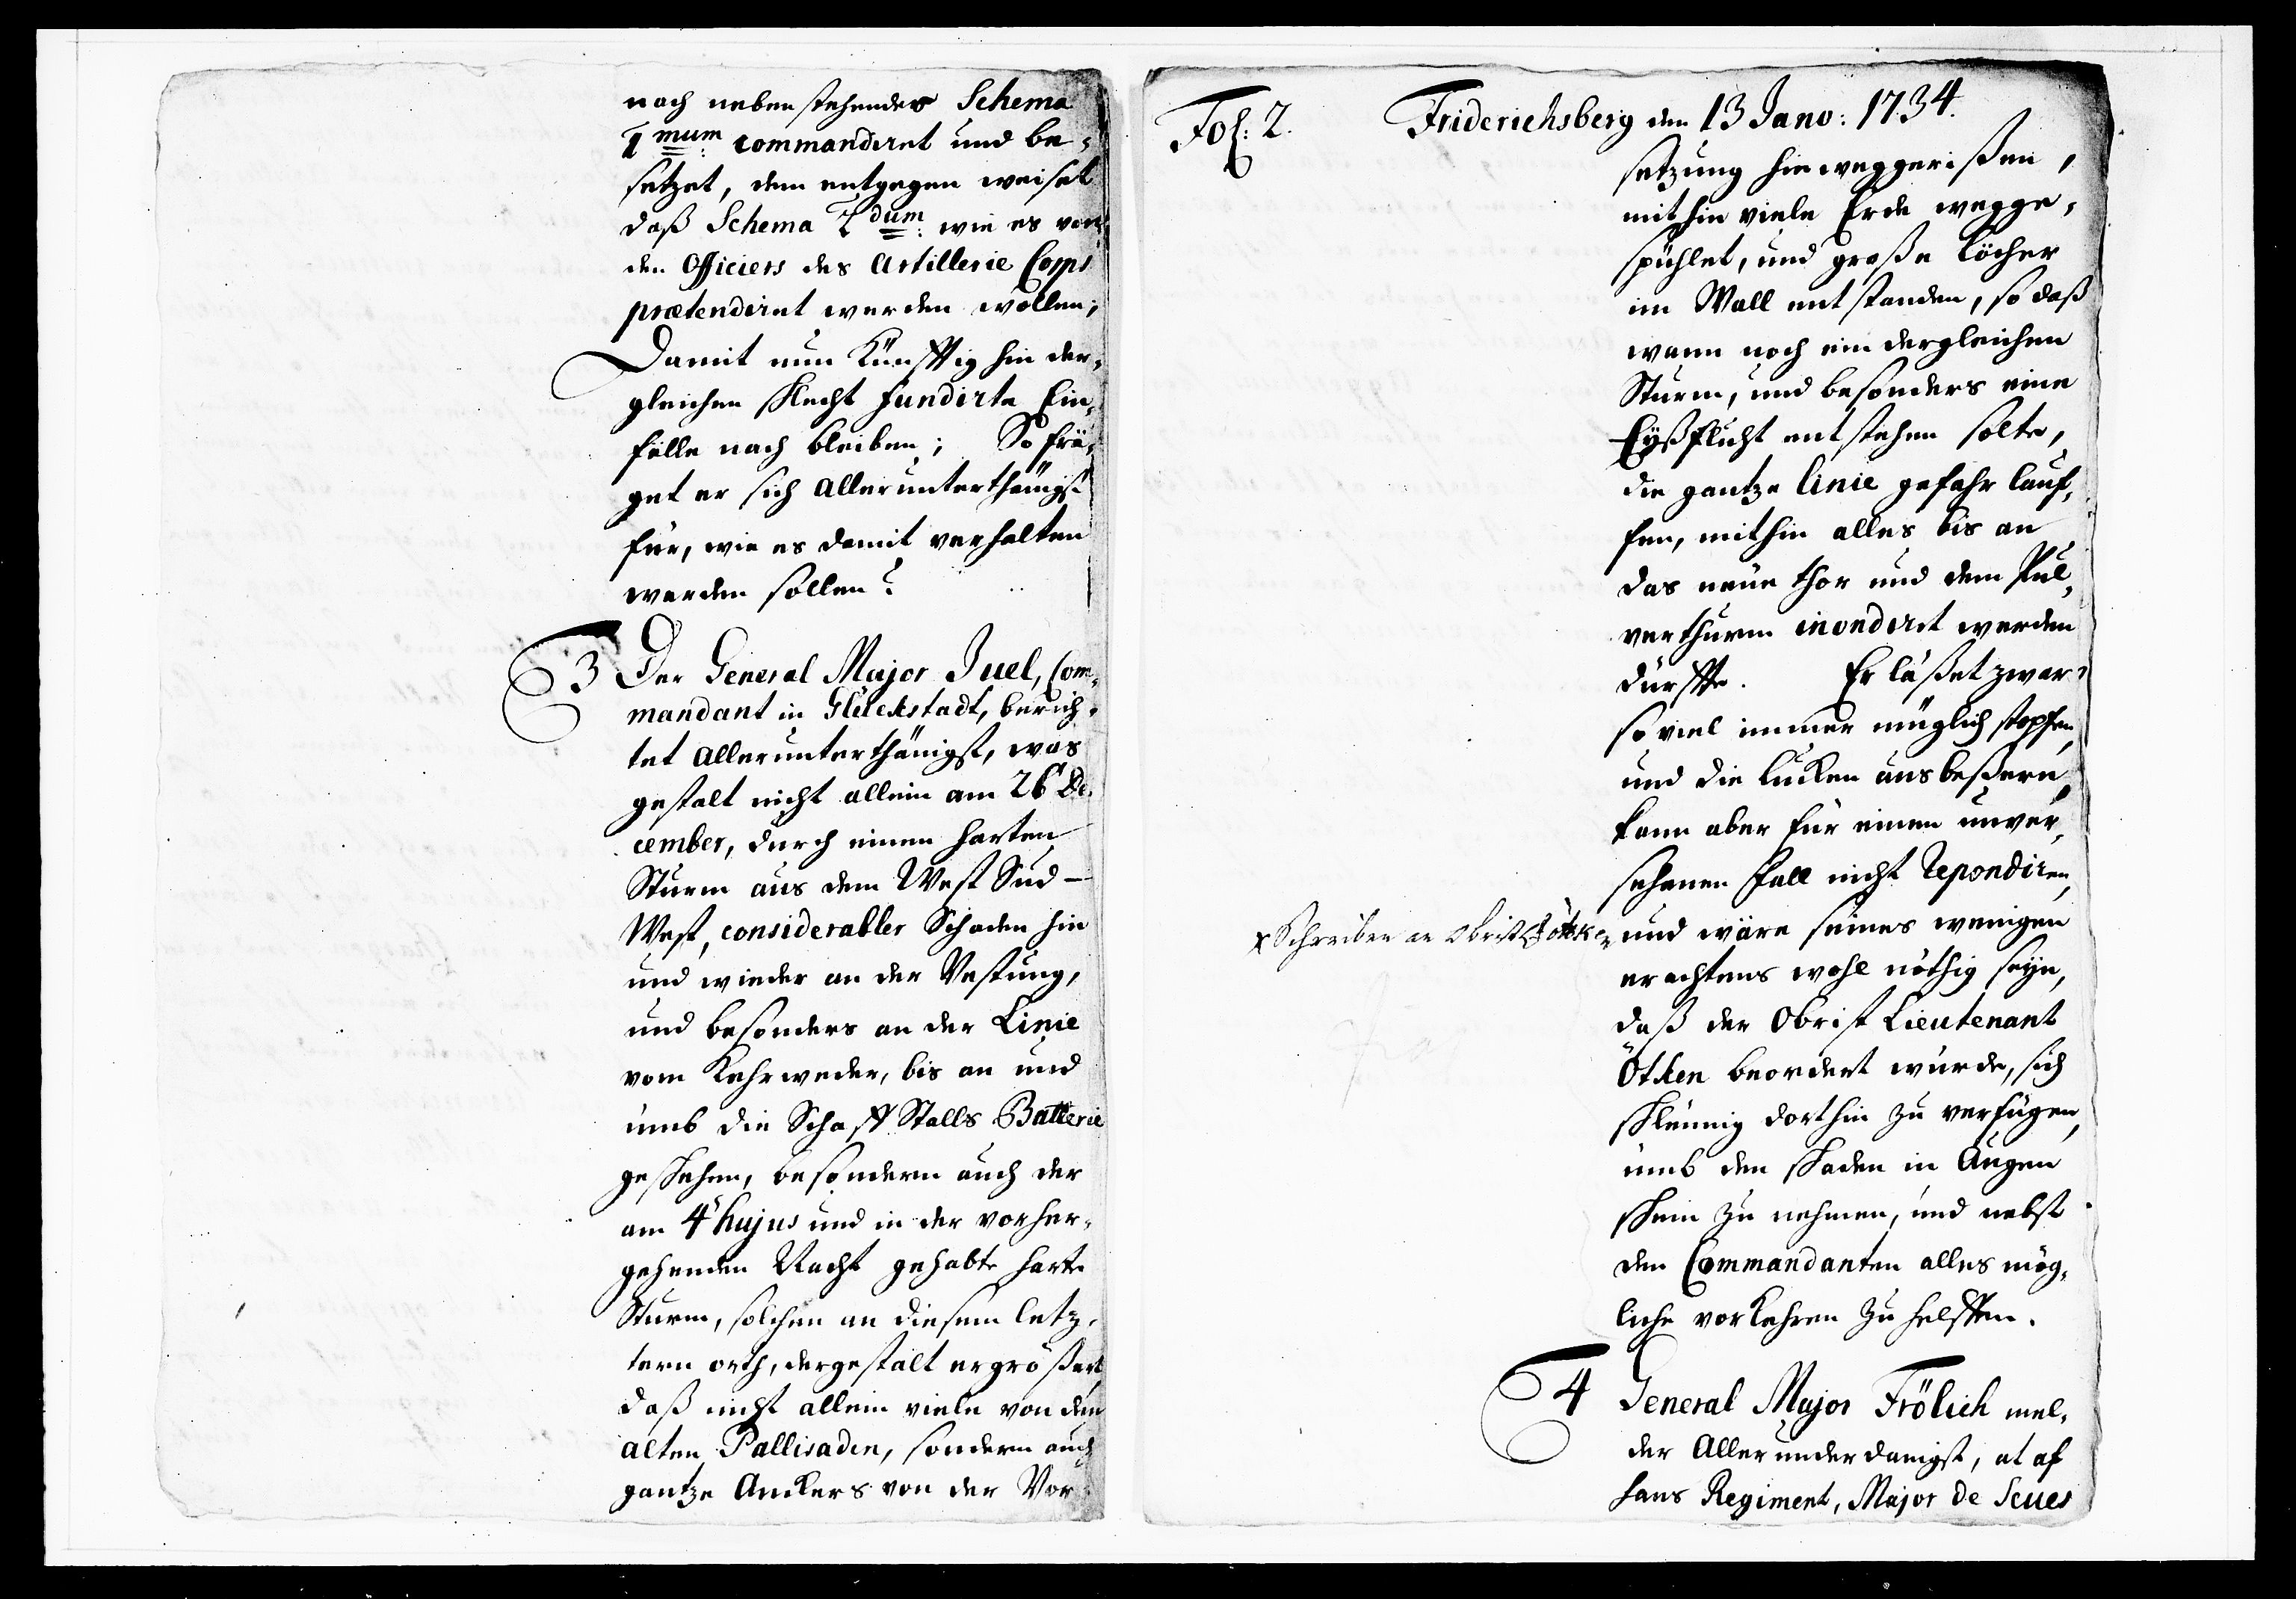 nach nebenstehender Schema
1mum: commandiret und be-
setzet, dem entgegen weiset
daß Schema 2dum: wie es von
den Officiers des Artillerie Corps
prætendiret werden wollen,
Damit nun Künfftig hin der-
gleichen schlecht fundirte Ein-
fälle nach bleiben; So frä-
get er sich allerunterthänigst
für, wie es damit verhalten
werden sollen?
3 Der General Major Juel, Com-
mandant in Glückstadt, berich-
tet allerunterthänigst, was
gestalt nicht allein am 26 De-
cember, durch einen harten
Sturm aus dem West Sud-
West, considerabler Schaden hin
und wieder an der Vestung,
und besonders an der Linie
vom Kehrweder, bis an und
umb die Schaff Stalls Batterie
geschehen, besondern auch der
am 4t hujus und in der vorher-
gehenden Nacht gehabte harte
Sturm, solchen an diesem letz-
tern orth, dergestalt ergrößert,
daß nicht allein viele von den
alten Pallisaden, sondern auch
gantze Anckers von der Vor-
Fol: 2. Friderichsberg den 13 Janv: 1734.
setzung hinweggerißen,
mithin viele Erde wegge-
spühlet, und große Löcher
im Wall entstanden, so daß
wann noch ein dergleichen
Sturm, und besonders eine
Eyßflucht entstehen solte,
die gantze Linie gefahr lauf-
fen, mithin alles bis an
das neue Thor und dem Pul-
verthurm inondiret werden
dürffte. Er läßet zwar
so viel immer müglich stopfen,
und die Lucken ausbeßern,
kann aber für einen unver-
sehenen Fall nicht repondiren,
x Schreiben an Obristl Ötken
und wäre seines wenigen
erachtens wohl nöthig seyn,
daß der Obrist Lieutenant
Ötken beordert würde, sich
schleunig dorthin zu verfügen,
umb den schaden in Augen
schein zu nehmen, und nebst
den Commandanten alles mög-
liche vorkehren zu helffen.
4 General Major Frölich mel-
der allerunderdanigst, at af
hans Regiment, Major de Seues